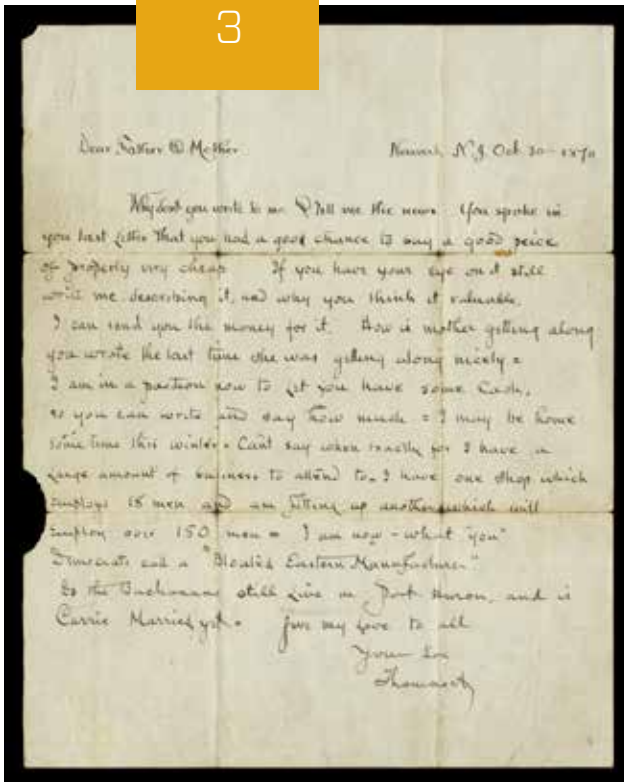 3
Dear Father & Mother
Newark N.J. Oct 30 - 1870
Why dont you write to me & tell me the news. You spoke in
you last letter that you had a good chance to buy a good peice
of property very cheap If you have your eye on it still
write me describing it, and why you think it valuable.
I can send you the money for it. How is mother getting along
you wrote the last time she was getting along nicely =
I am in a position now to let you have some Cash,
so you can write and say how much = I may be home
some time this winter - Cant say when exactly for I have a
Large amount of business to attend to. I have one shop which
Employs 18 men and am fitting up another which will
Employ over 150 men = I am now - what "you"
Democrats call a "Bloated Eastern Manufacturer"
Do the Buchanans still live in Port Huron, and is
Carrie Married yet - Give my love to all
Your Son
Thomas A